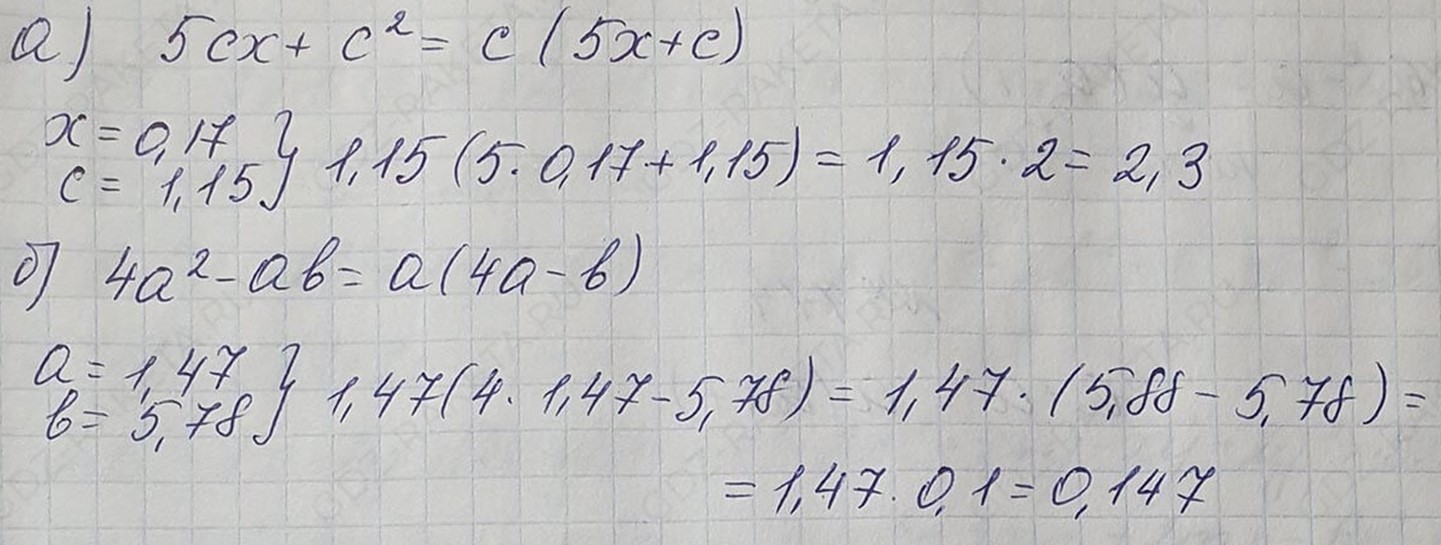 а) 5cx + c² = c (5x + c)
x = 0,17
c = 1,15 } 1,15 (5 · 0,17 + 1,15) = 1,15 · 2 = 2,3
б) 4a² - ab = a (4a - b)
a = 1,47
b = 5,78 } 1,47 (4 · 1,47 - 5,78) = 1,47 · (5,88 - 5,78) =
= 1,47 · 0,1 = 0,147